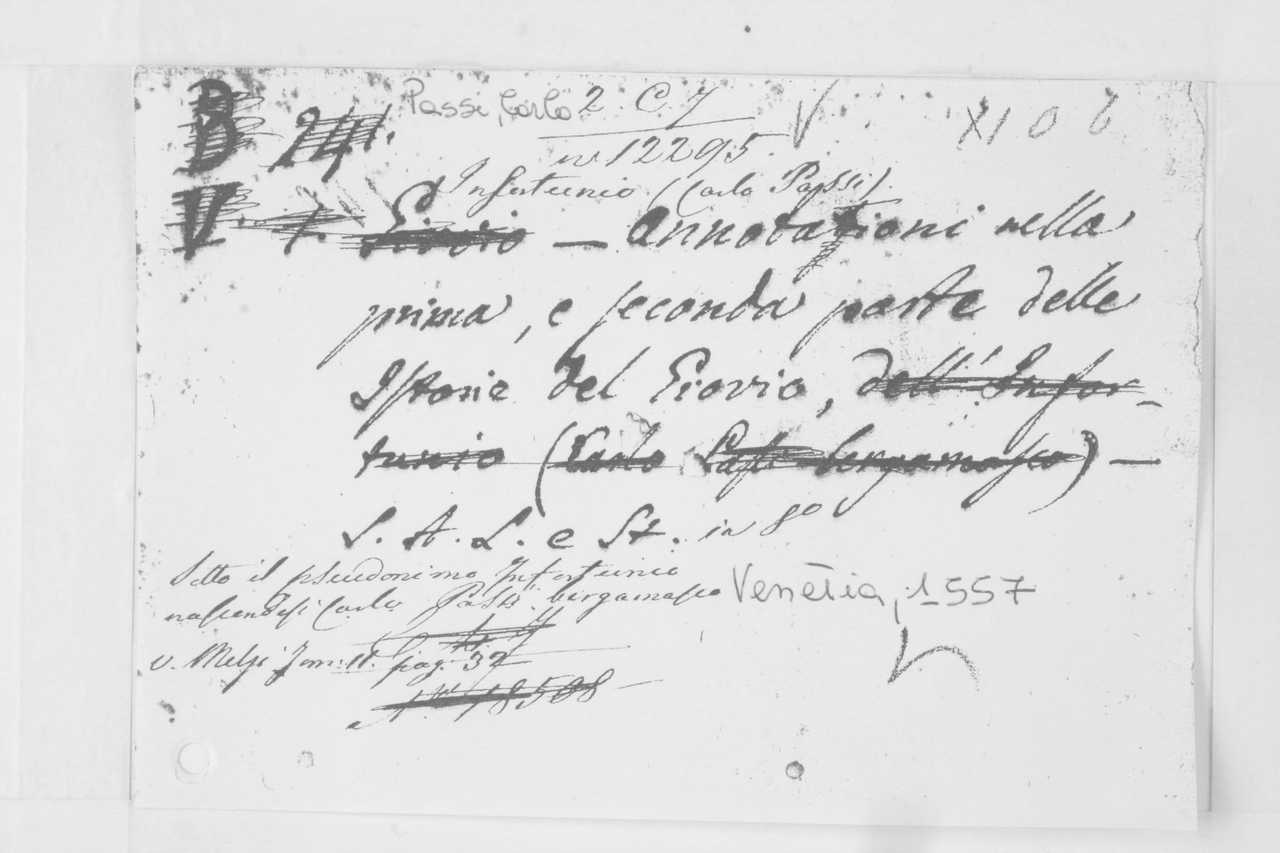 B 241. Passi, Carlo 2. C. 7 V XI 0 6
nº 12295.
Infortunio (Carlo Passi).
V. 7. Giovio — Annotazioni nella
prima, e seconda parte delle
Istorie del Giovio, dell' Infor-
tunio (Carlo Passi bergamasco) —
S. A. L. e St. in 8º
Sotto il pseudonimo Infortunio
nascondesi Carlo Passi bergamasco
Venetia, 1557
v. Melzi Tom: II. pag. 32
Nº 18508